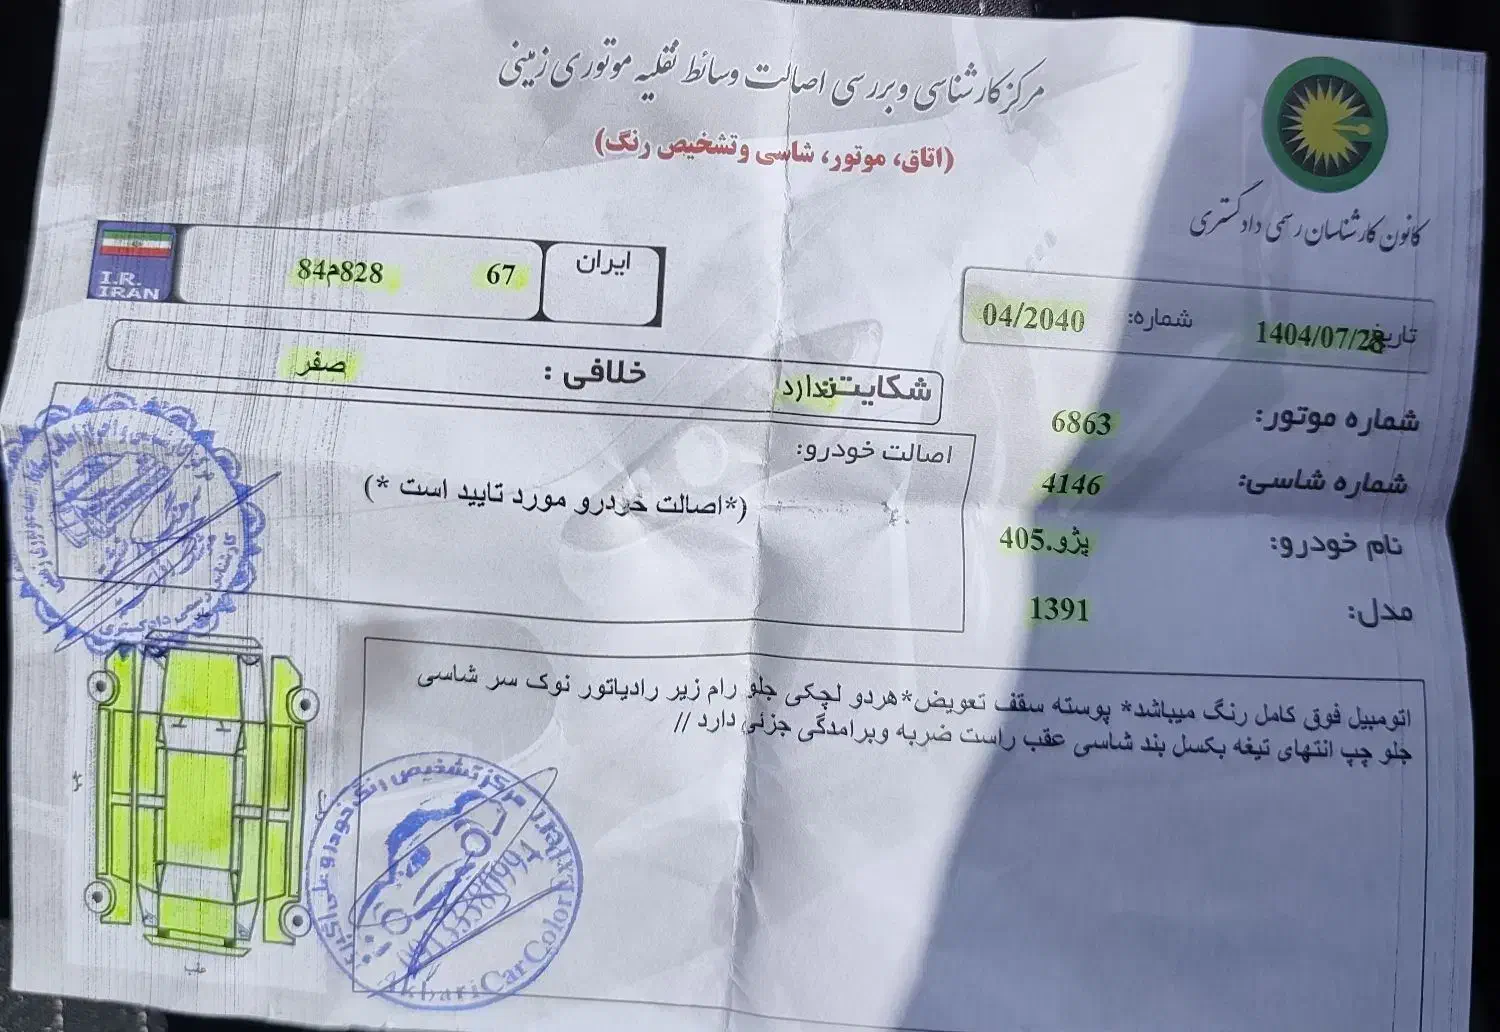 مرکز کارشناسی و بررسی اصالت وسائط نقلیه موتوری زمینی
(اتاق، موتور، شاسی وتشخیص رنگ)
کانون کارشناسان رسمی دادگستری
I.R.
IRAN
84م828
67
ایران
تاریخ 1404/07/28
شماره: 04/2040
شکایت ندارد
خلافی : صفر
شماره موتور: 6863
شماره شاسی: 4146
نام خودرو: پژو.405
مدل: 1391
اصالت خودرو:
(*اصالت خردرو مورد تایید است *)
اتومبیل فوق کامل رنگ میباشد* پوسته سقف تعویض*هردو لچکی جلو رام زیر رادیاتور نوک سر شاسی
جلو چپ انتهای تیغه بکسل بند شاسی عقب راست ضربه وبرامدگی جزئی دارد //
عقب
مرکز تشخیص رنگ خودرو علی اکبری
Akbari Car Color Expert